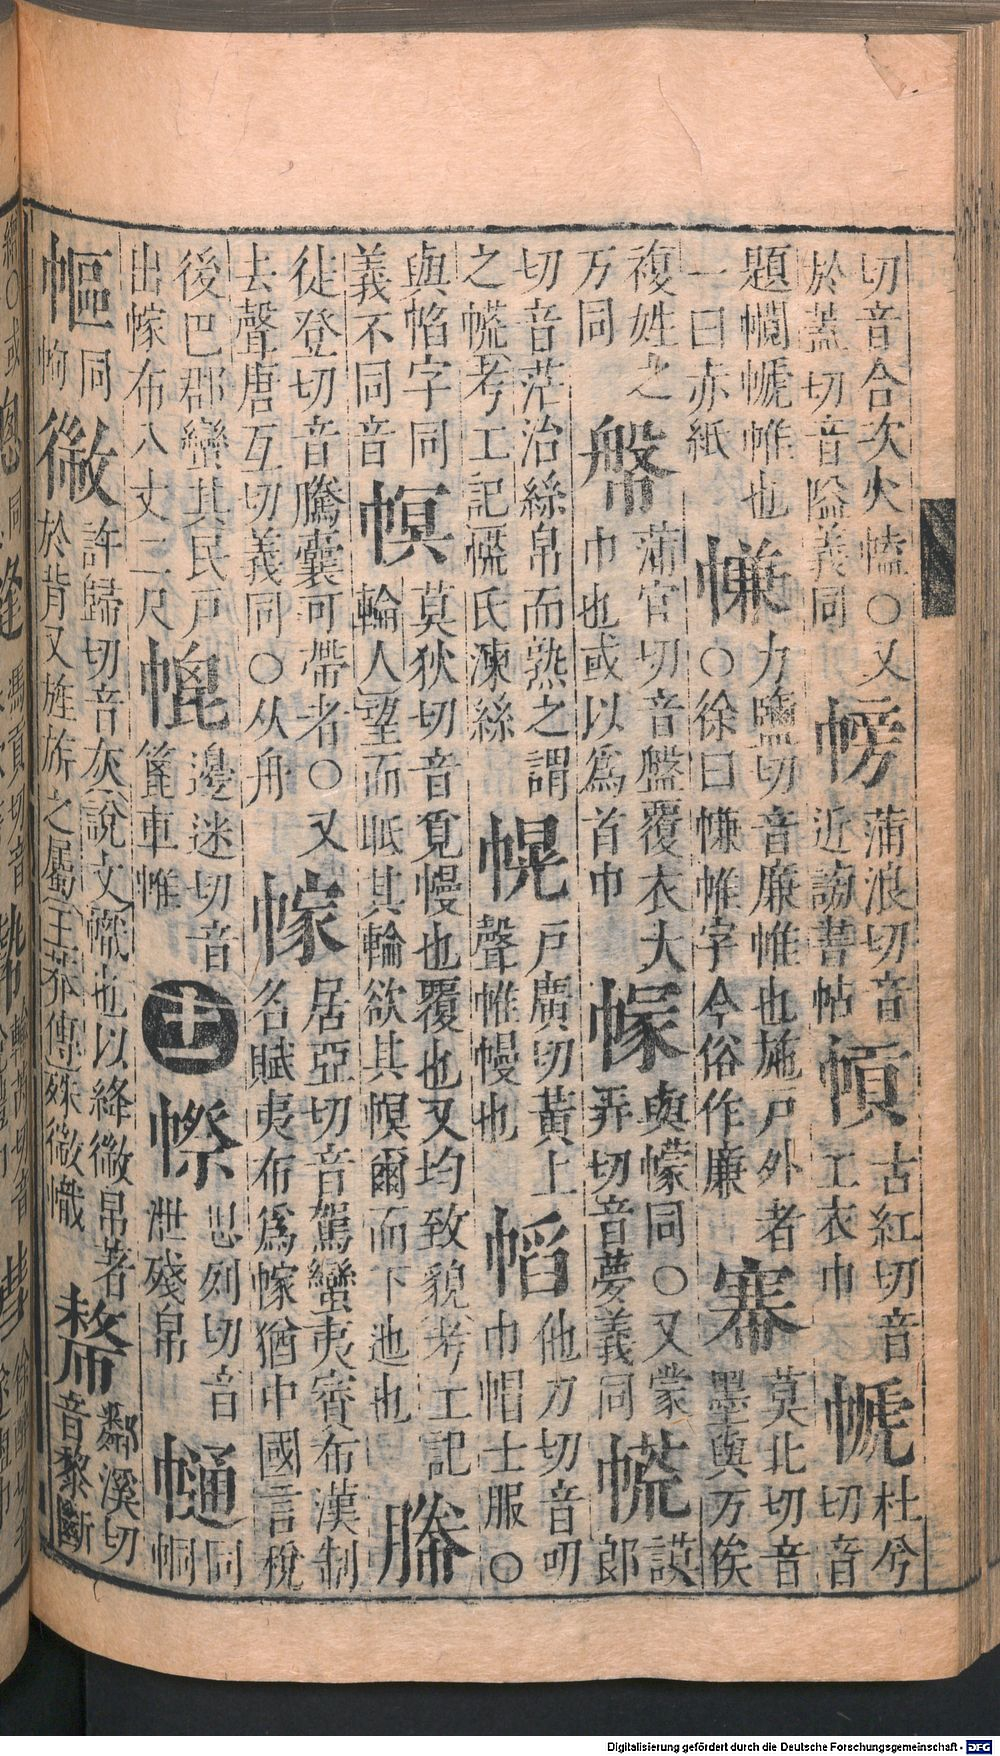 切音合次火○又於蓋切音隘義同 蒲浪切音近謗菩帖 古紅切音工衣巾 杜兮切音
題帷也一曰赤紙 㡘 力鹽切音廉帷也施戶外者○徐曰㡘帷字今俗作廉 莫北切音墨與万俟
複姓之万同 幋 蒲官切音盤覆衣大巾也或以爲首巾 與幪同○又蒙弄切音夢義同 㡛 謨郎
切音茫治絲帛而熟之謂之㡛考工記㡛氏湅絲 幌 戶廣切黃上聲帷幔也 幍 他刀切音叨巾帽士服○
與㡊字同義不同音 幎 莫狄切音覓幔也覆也又均致貌考工記輪人望而眡其輪欲其幎爾而下迤也 幐
徒登切音騰囊可帶者○又去聲唐互切義同○从舟 幏 居亞切音駕蠻夷賨布漢制名賦夷布爲幏猶中國言稅
後巴郡蠻其民戶出幏布八丈二尺 邊迷切音篦車帷 十一 㡜 思列切音泄殘帛 同
同 許歸切音灰說文幟也以絳帛著於背又旌旂之屬王莽傳殊幟 鄰溪切音黎斷
Digitalisierung gefördert durch die Deutsche Forschungsgemeinschaft - DFG